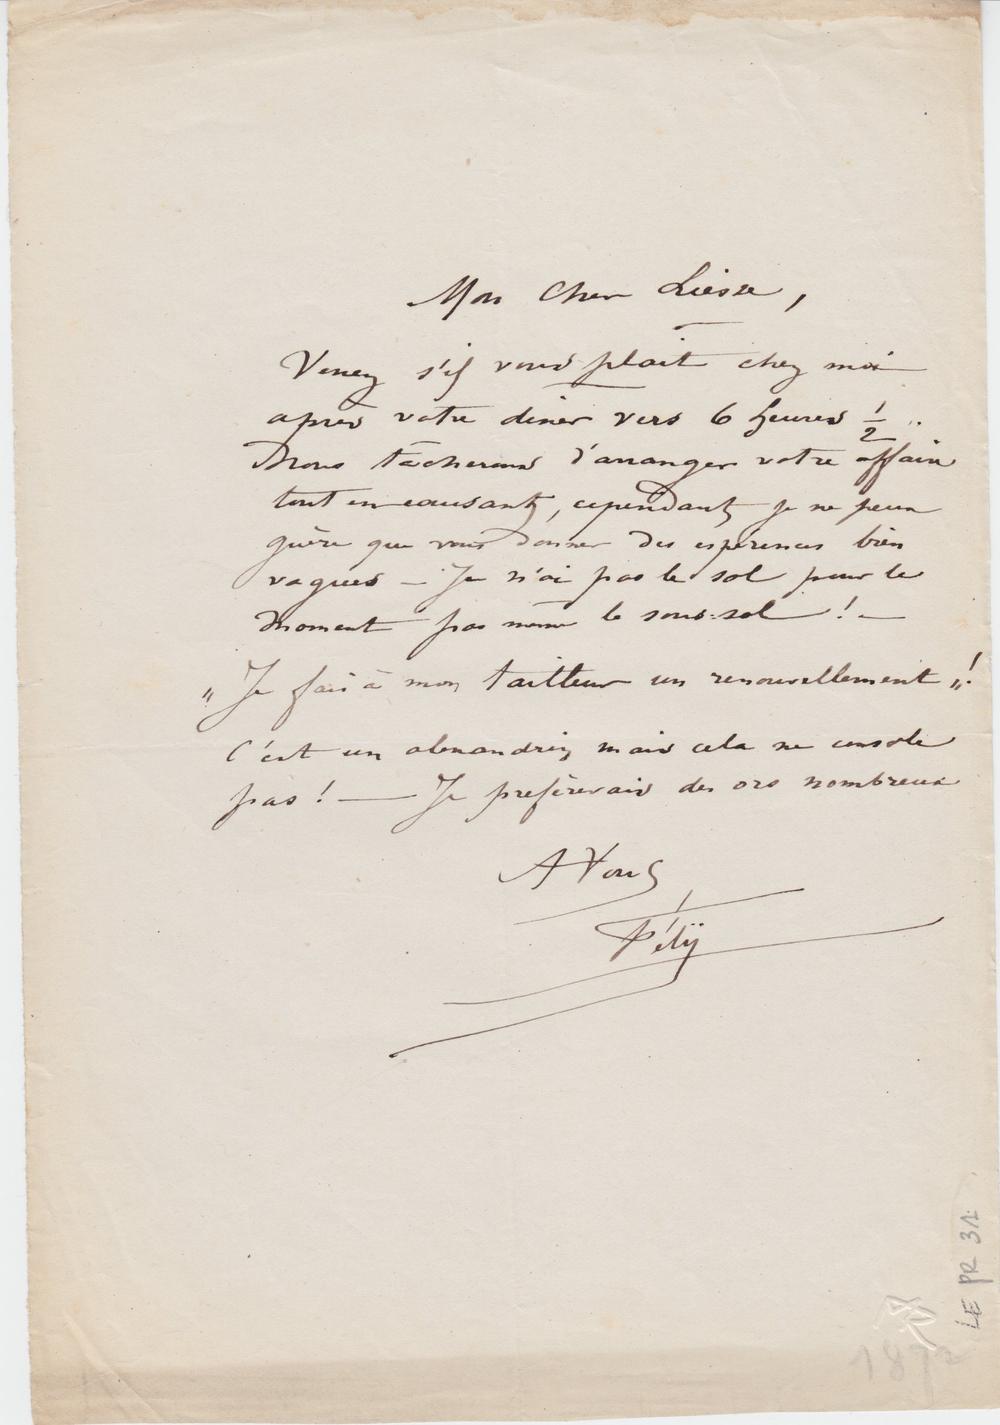 Mon Cher Liesse,
Venez s'il vous plait chez moi
après votre diner vers 6 heures 1/2 ..
Nous tâcherons d'arranger votre affaire
tout en causant, cependant je ne peux
guère que vous donner des espérances bien
vagues — Je n'ai pas le sol pour le
moment pas même le sous-sol ! —
"Je fais à mon tailleur un renouvellement" !
C'est un alexandrin mais cela ne console
pas ! — Je prefèrerais des ors nombreux
A Vous
Fély
LE PR 31.
187